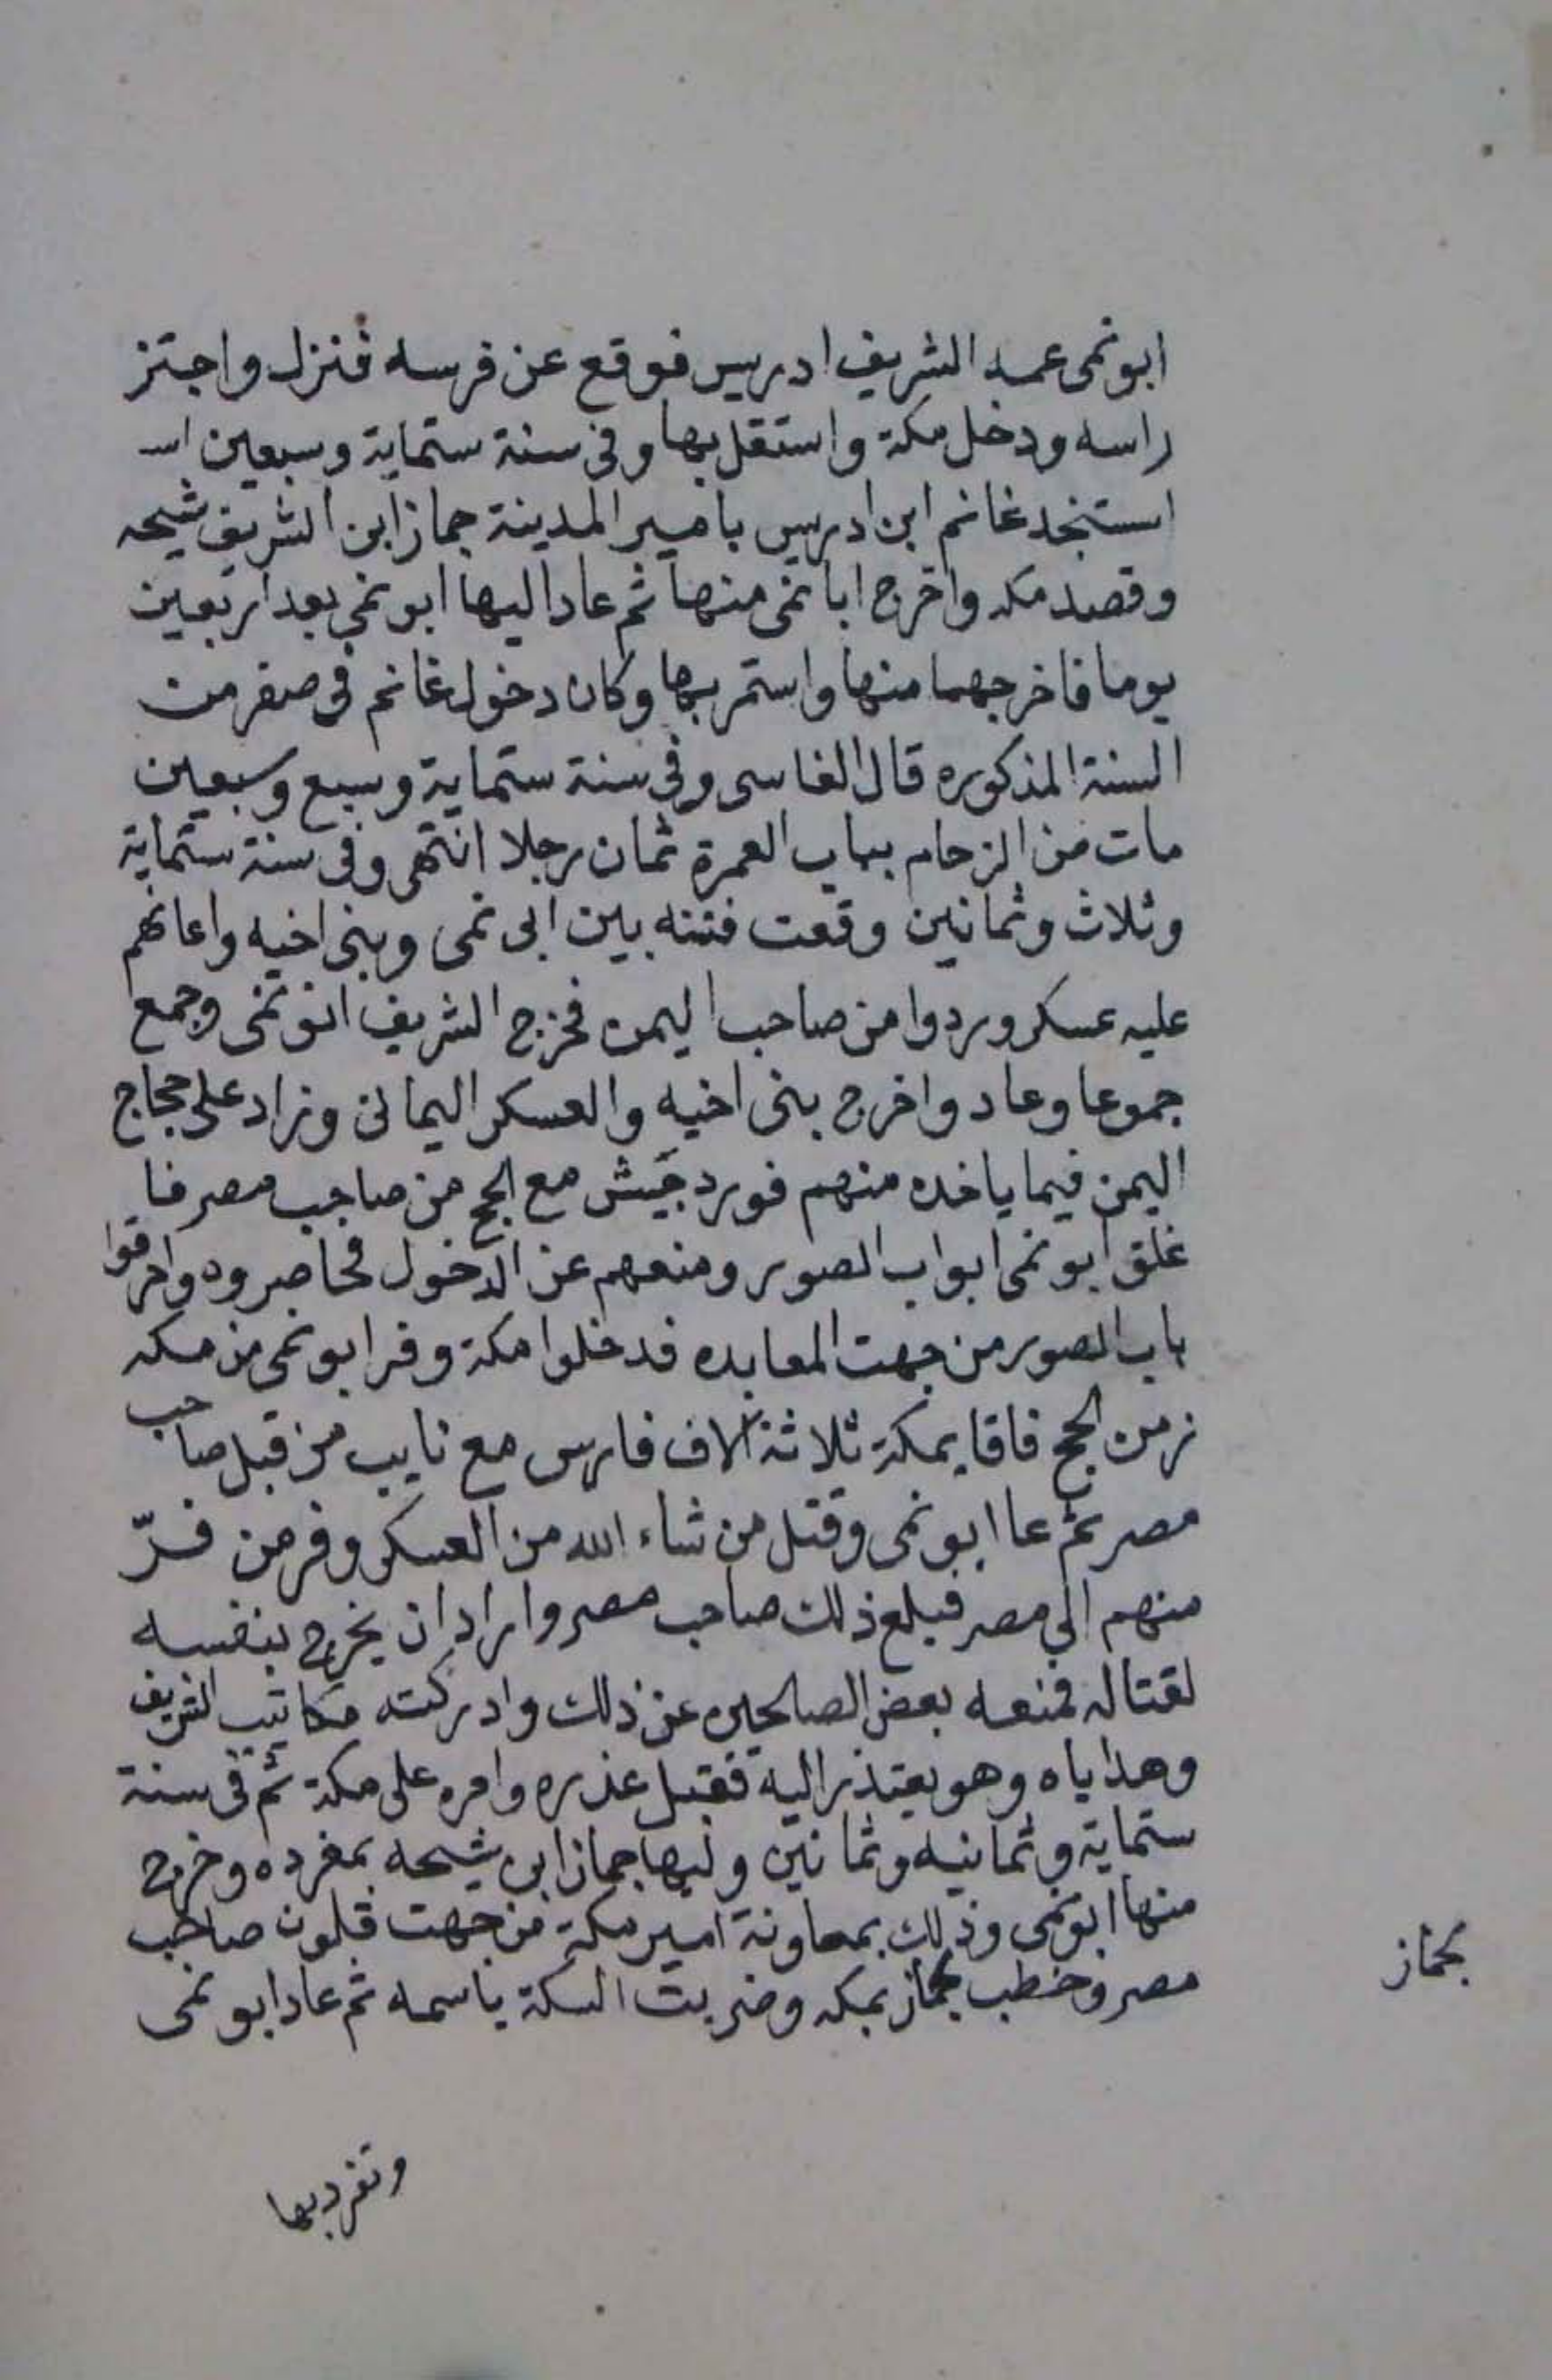 ابونمى عمه الشريف ادريس فوقع عن فرسه فنزل واجتز
راسه ودخل مكة واستقل بها وفى سنة ستماية وسبعين اسـ
استنجد غانم ابن ادريس بامير المدينة جماز ابن الشريف شيحه
وقصد مكه واخرج ابا نمى منها ثم عاد اليها ابو نمى بعد اربعين
يوما فاخرجهما منها واستمر بها وكان دخول غانم فى صفر من
السنة المذكوره قال الفاسى وفى سنة ستماية وسبع وسبعين
مات من الزحام بباب العمرة ثمان رجلا انتهى وفى سنة ستماية
وثلاث وثمانين وقعت فتنه بين ابى نمى وبنى اخيه واعانهم
عليه عسكر وردوا من صاحب اليمن فخرج الشريف ابو نمى وجمع
جموعا وعاد واخرج بنى اخيه والعسكر اليمانى وزاد على حجاج
اليمن فيما ياخذه منهم فورد جيش مع الحج من صاحب مصر فا
غلق ابو نمى ابواب الصور ومنعهم عن الدخول فحاصروه واحرقوا
باب الصور من جهت المعابده فدخلوا مكة وفر ابو نمى من مكه
زمن الحج فاقا بمكة ثلاثة الاف فارس مع نايب من قبل صاحب
مصر ثم عا ابو نمى وقتل من شاء الله من العسكر وفر من فرّ
منهم الى مصر فبلغ ذلك صاحب مصر واراد ان يخرج بنفسه
لقتاله فمنعه بعض الصالحين عن ذلك وادركته مكاتيب الشريف
وهداياه وهو يعتذر اليه فقبل عذره وامره على مكة ثم فى سنة
ستماية وثمانيه وثمانين وليها جماز ابن شيحه بمفرده وخرج
منها ابو نمى وذلك بمعاونة امير مكة من جهت قلون صاحب
مصر وخطب لجماز بمكه وضربت السكة باسمه ثم عاد ابو نمى
لجماز
وتفرد بها